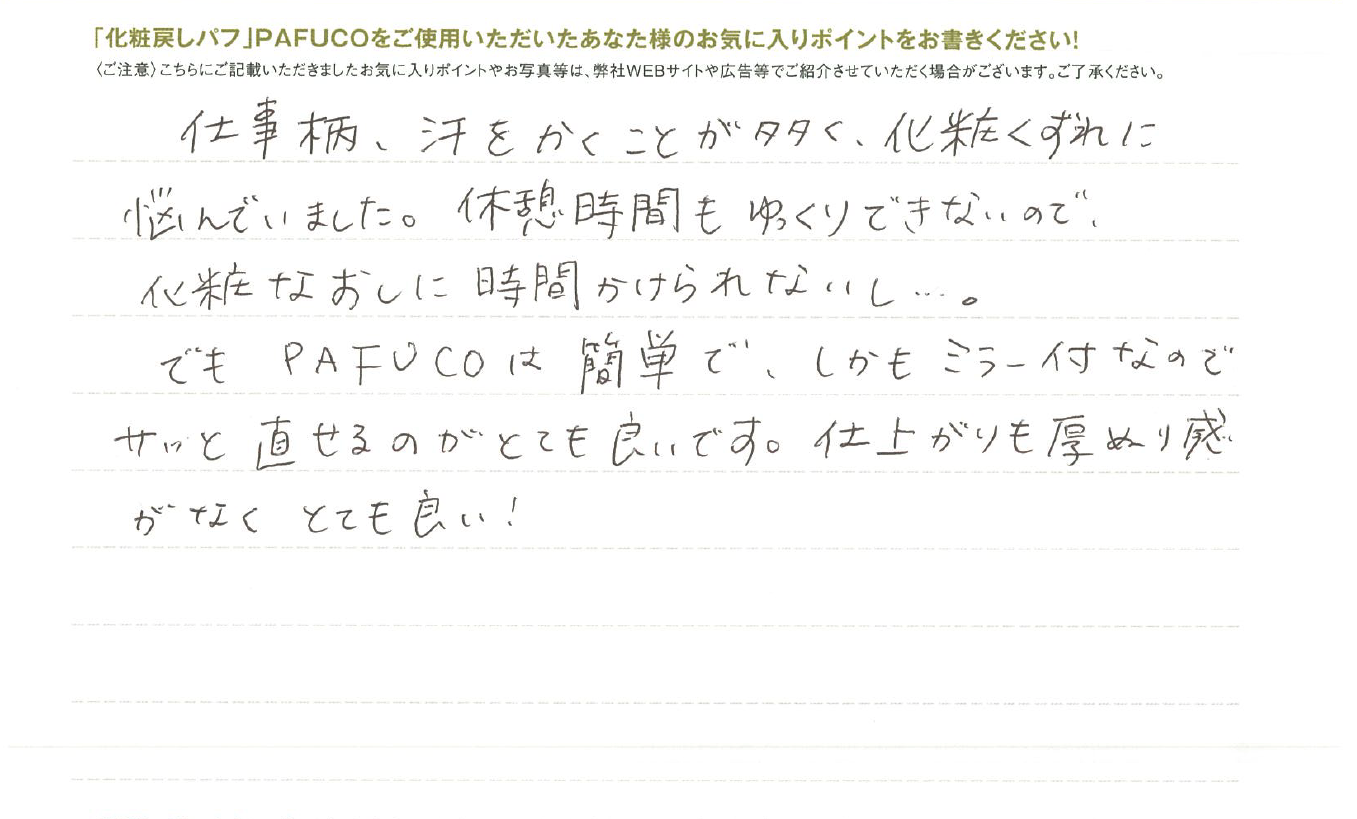 「化粧戻しパフ」PAFUCOをご使用いただいたあなた様のお気に入りポイントをお書きください!
〈ご注意〉こちらにご記載いただきましたお気に入りポイントやお写真等は、弊社WEBサイトや広告等でご紹介させていただく場合がございます。ご了承ください。
仕事柄、汗をかくことが多く、化粧くずれに
悩んでいました。休憩時間もゆっくりできないので、
化粧なおしに時間かけられないし…。
でも PAFUCOは簡単で、しかもミラー付なので
サッと直せるのがとても良いです。仕上がりも厚ぬり感
がなく とても良い!